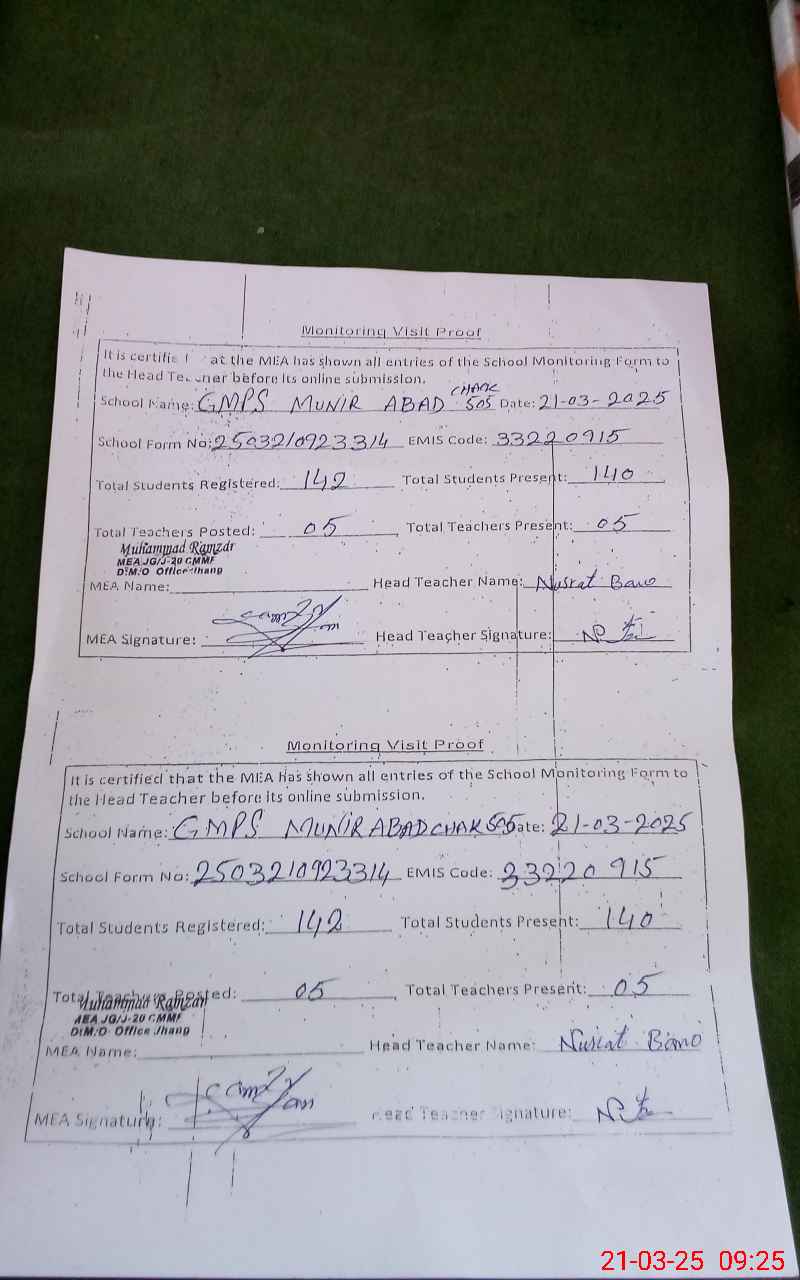 Monitoring Visit Proof
It is certifie at the MEA has shown all entries of the School Monitoring Form to
the Head Te ner before its online submission.
School Name: GMPS MUNIR ABAD CHAK 505 Date: 21-03-2025
School Form No: 2503210923314 EMIS Code: 33220915
Total Students Registered: 142 Total Students Present: 140
Total Teachers Posted: 05 Total Teachers Present: 05
Muhammad Ramzan
MEA JG/J-20 CMMF
D.M.O Office Jhang
MEA Name: Head Teacher Name: Nusrat Bano
MEA Signature: Head Teacher Signature:
Monitoring Visit Proof
It is certified that the MEA has shown all entries of the School Monitoring Form to
the Head Teacher before its online submission.
School Name: GMPS MUNIR ABAD CHAK 505 ate: 21-03-2025
School Form No: 2503210923314 EMIS Code: 33220915
Total Students Registered: 142 Total Students Present: 140
Total Teachers Posted: 05 Total Teachers Present: 05
Muhammad Ramzan
MEA JG/J-20 CMMF
D.M.O Office Jhang
MEA Name: Head Teacher Name: Nusrat Bano
MEA Signature: Head Teacher Signature:
21-03-25 09:25